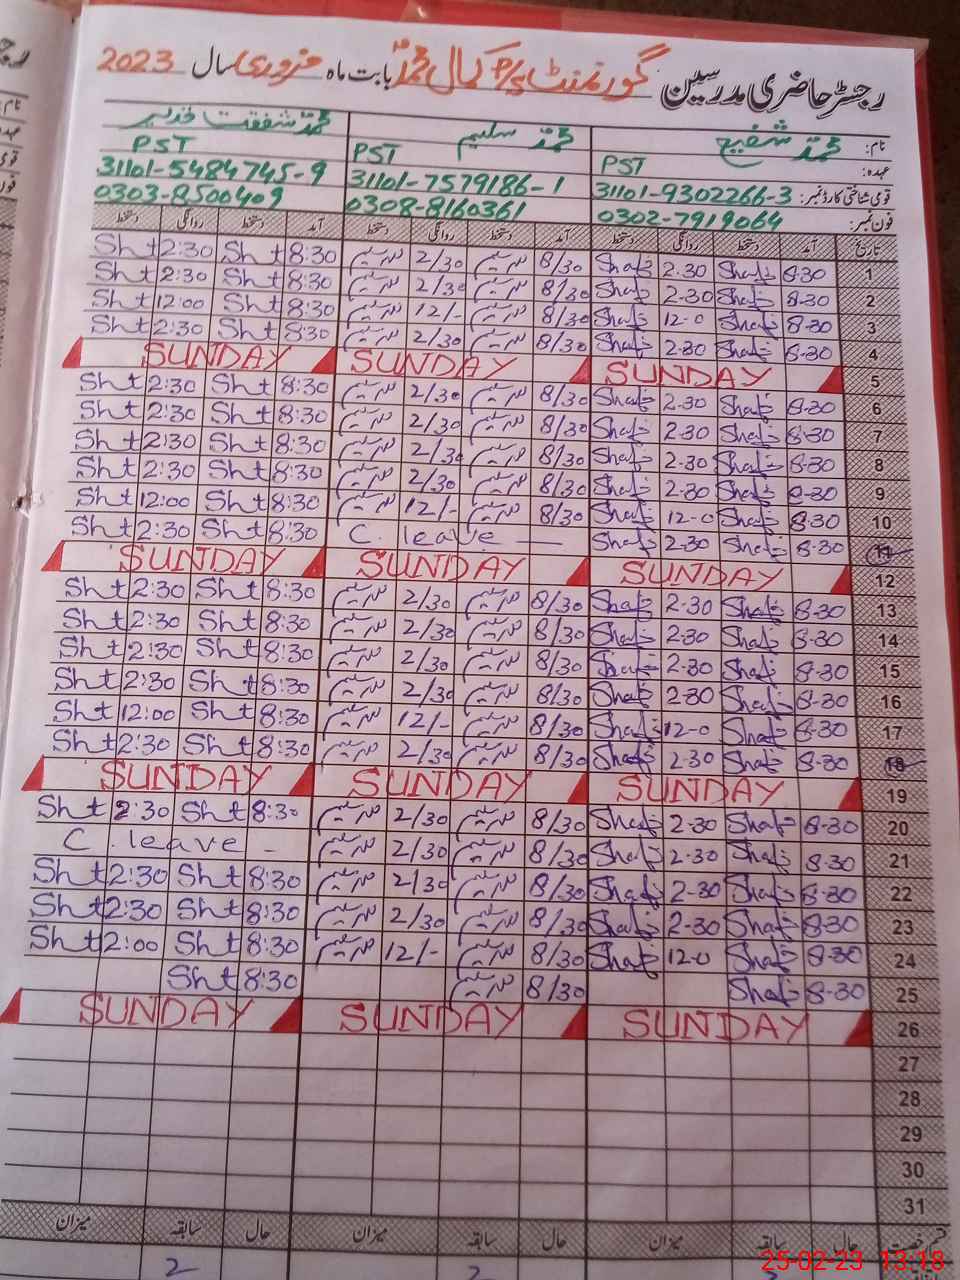 رجسٹر حاضری مدرسین گورنمنٹ P/S کمال محمد بابت ماہ فروری سال 2023
نام: محمد شفیع محمد سلیم محمد شفقت
عہدہ: PST PST PST
قومی شناختی کارڈ نمبر: 31101-9302266-3 31101-7579186-1 31101-5484745-9
فون نمبر: 0302-7919064 0308-8160361 0303-8500409
تاریخ آمد دستخط روانگی دستخط آمد دستخط روانگی دستخط آمد دستخط روانگی دستخط
1 8-30 Shafi 2.30 Shafi 8/30 سلیم 2/30 سلیم 8:30 Sht 2:30 Sht
2 8-30 Shafi 2-30 Shafi 8/30 سلیم 2/30 سلیم 8:30 Sht 2:30 Sht
3 8-30 Shafi 12-0 Shafi 8/30 سلیم 12/- سلیم 8:30 Sht 12:00 Sht
4 8-30 Shafi 2-30 Shafi 8/30 سلیم 2/30 سلیم 8:30 Sht 2:30 Sht
5 SUNDAY SUNDAY SUNDAY
6 8-30 Shafi 2-30 Shafi 8/30 سلیم 2/30 سلیم 8:30 Sht 2:30 Sht
7 8-30 Shafi 2-30 Shafi 8/30 سلیم 2/30 سلیم 8:30 Sht 2:30 Sht
8 8-30 Shafi 2-30 Shafi 8/30 سلیم 2/30 سلیم 8:30 Sht 2:30 Sht
9 8-30 Shafi 2-30 Shafi 8/30 سلیم 2/30 سلیم 8:30 Sht 2:30 Sht
10 8-30 Shafi 12-0 Shafi 8/30 سلیم 12/- سلیم 8:30 Sht 12:00 Sht
11 8-30 Shafi 2-30 Shafi C. leave — 8:30 Sht 2:30 Sht
12 SUNDAY SUNDAY SUNDAY
13 8-30 Shafi 2-30 Shafi 8/30 سلیم 2/30 سلیم 8:30 Sht 2:30 Sht
14 8-30 Shafi 2-30 Shafi 8/30 سلیم 2/30 سلیم 8:30 Sht 2:30 Sht
15 8-30 Shafi 2-30 Shafi 8/30 سلیم 2/30 سلیم 8:30 Sht 2:30 Sht
16 8-30 Shafi 2-30 Shafi 8/30 سلیم 2/30 سلیم 8:30 Sht 2:30 Sht
17 8-30 Shafi 12-0 Shafi 8/30 سلیم 12/- سلیم 8:30 Sht 12:00 Sht
18 8-30 Shafi 2-30 Shafi 8/30 سلیم 2/30 سلیم 8:30 Sht 2:30 Sht
19 SUNDAY SUNDAY SUNDAY
20 8-30 Shafi 2-30 Shafi 8/30 سلیم 2/30 سلیم 8:30 Sht 2:30 Sht
21 8-30 Shafi 2-30 Shafi 8/30 سلیم 2/30 سلیم C. leave -
22 8-30 Shafi 2-30 Shafi 8/30 سلیم 2/30 سلیم 8:30 Sht 2:30 Sht
23 8-30 Shafi 2-30 Shafi 8/30 سلیم 2/30 سلیم 8:30 Sht 2:30 Sht
24 8-30 Shafi 12-0 Shafi 8/30 سلیم 12/- سلیم 8:30 Sht 12:00 Sht
25 8-30 Shafi 8/30 سلیم 8:30 Sht
26 SUNDAY SUNDAY SUNDAY
27
28
29
30
31
قسم رخصت حال سابقہ میزان حال سابقہ میزان حال سابقہ میزان
2 2
25-02-23 13:18